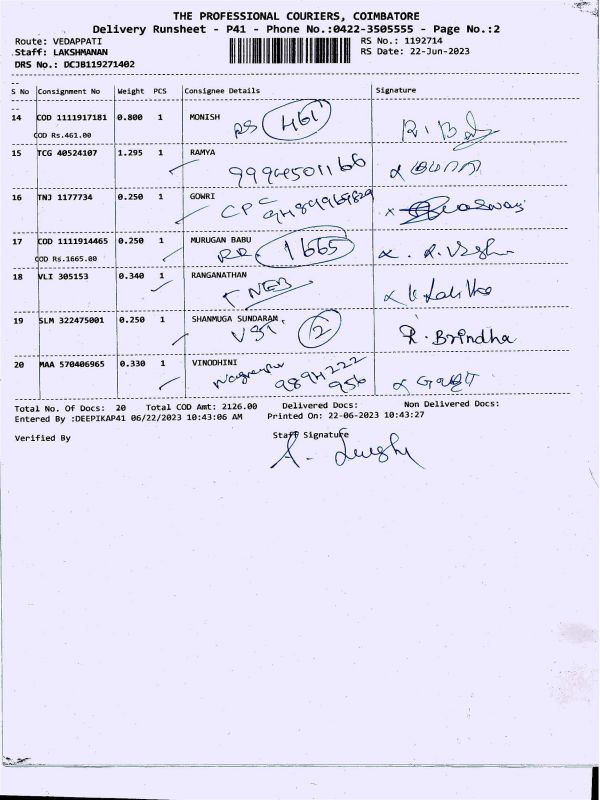 THE PROFESSIONAL COURIERS, COIMBATORE
Delivery Runsheet - P41 - Phone No.:0422-3505555 - Page No.:2
Route: VEDAPPATI
RS No.: 1192714
Staff: LAKSHMANAN
RS Date: 22-Jun-2023
DRS No.: DCJB119271402
S No Consignment No Weight PCS Consignee Details Signature
14 COD 1111917181 0.800 1 MONISH
COD Rs.461.00
RS 461
15 TCG 40524107 1.295 1 RAMYA
16 TNJ 1177734 0.250 1 GOWRI
CPC
17 COD 1111914465 0.250 1 MURUGAN BABU
COD Rs.1665.00
1665
18 VLI 305153 0.340 1 RANGANATHAN
TNEB
19 SLM 322475001 0.250 1 SHANMUGA SUNDARAM,
2
R. Brindha
20 MAA 570406965 0.330 1 VINODHINI
9894222
956
Total No. Of Docs: 20 Total COD Amt: 2126.00 Delivered Docs: Non Delivered Docs:
Entered By :DEEPIKAP41 06/22/2023 10:43:06 AM Printed On: 22-06-2023 10:43:27
Verified By Staff Signature